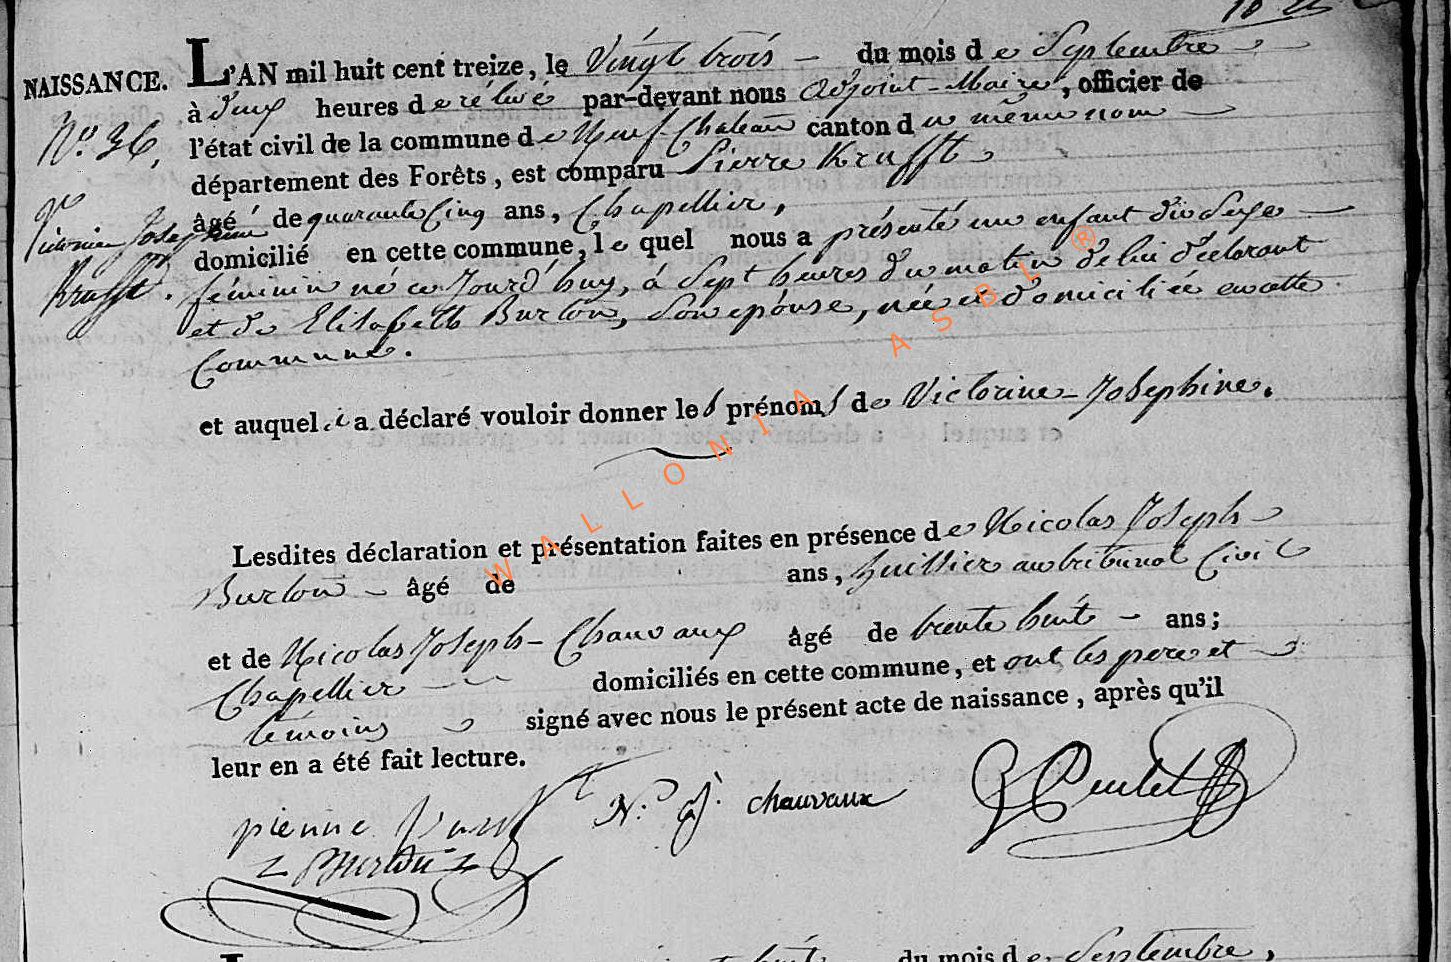 NAISSANCE.
N.º 36.
Victorine Josephine
Krufft.
L'AN mil huit cent treize, le Vingt trois du mois de Septembre
à deux heures de rélevé par-devant nous adjoint-Maire, officier de
l'état civil de la commune de Neuf-Chateau canton du même nom
département des Forêts, est comparu Pierre Krufft
âgé de quarante Cinq ans, Chapellier,
domicilié en cette commune, lequel nous a présenté un enfant du Sexe
féminin né ce Jourd'huy, à Sept heures du matin de lui déclarant
et de Elisabeth Burlon, Son épouse, née et domiciliée en cette
Commune.
et auquel il a déclaré vouloir donner les prénoms de Victorine-Josephine.
Lesdites déclaration et présentation faites en présence de Nicolas Joseph
Burlon âgé de ans, huissier au tribunal Civil
et de Nicolas Joseph Chauvaux âgé de trente huit ans;
Chapellier domiciliés en cette commune, et ont les pere et
témoins signé avec nous le présent acte de naissance, après qu'il
leur en a été fait lecture.
N. J. chauvaux
Burlon
du mois de Septembre,
WALLONIA ASBL ®